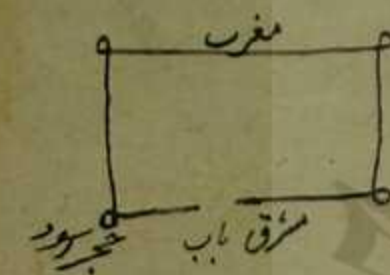 مغرب
مشرق باب
حجر اسود